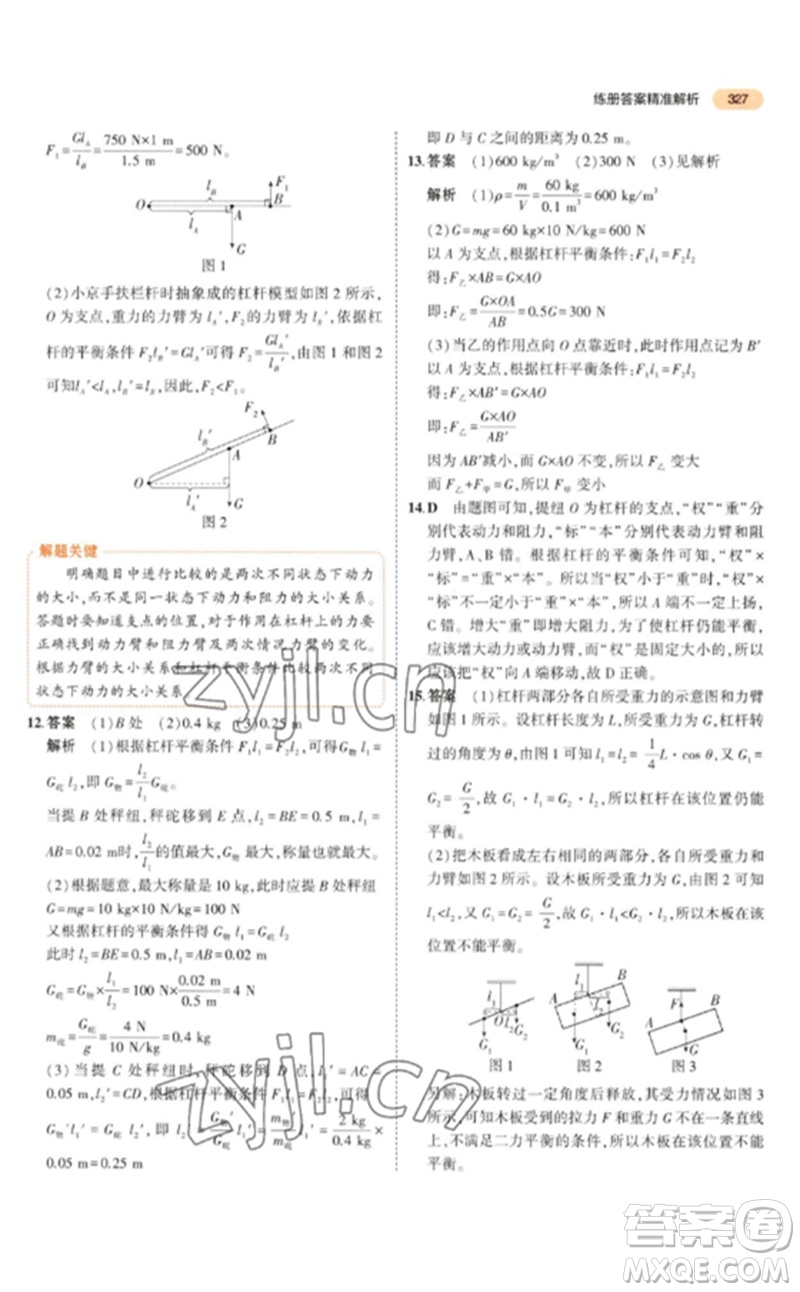 练册答案精准解析 327
F₁=Gl_A/l_B=750 N×1 m/1.5 m=500 N。
l_B F₁
O A B
l_A G
图 1
(2)小京手扶栏杆时抽象成的杠杆模型如图 2 所示，
O 为支点，重力的力臂为 l_A′，F₂的力臂为 l_B′，依据杠
杆的平衡条件 F₂l_B′=Gl_A′可得 F₂=Gl_A′/l_B′，由图 1 和图 2
可知l_A′<l_A，l_B′=l_B，因此，F₂<F₁。
F₂
l_B′ B
A
O l_A′ G
图 2
解题关键
明确题目中进行比较的是两次不同状态下动力
的大小，而不是同一状态下动力和阻力的大小关系。
答题时要知道支点的位置，对于作用在杠杆上的力要
正确找到动力臂和阻力臂及两次力臂的变化。
根据力臂的大小关系和杠杆平衡条件比较两次不同
状态下动力的大小关系
12.答案 (1)B 处 (2)0.4 kg (3)0.25 m
解析 (1)根据杠杆平衡条件 F₁l₁=F₂l₂，可得G物l₁=
G砣 l₂，即 G物=l₂/l₁G砣。
当提 B 处秤纽，秤砣移到 E 点，l₂=BE=0.5 m，l₁=
AB=0.02 m时，l₂/l₁的值最大，G物 最大，称量也最大。
(2)根据题意，最大称量是 10 kg，此时应提 B 处秤纽
G=mg=10 kg×10 N/kg=100 N
又根据杠杆的平衡条件得 G物 l₁=G砣 l₂
此时 l₂=BE=0.5 m，l₁=AB=0.02 m
G砣=G物×l₁/l₂=100 N×0.02 m/0.5 m=4 N
m砣=G砣/g=4 N/10 N/kg=0.4 kg
(3)当提 C 处秤纽时，秤砣移到 D 点，l₁′=AC=
0.05 m，l₂′=CD，根据杠杆平衡条件 F₁l₁=F₂l₂可得
G物′l₁′=G砣 l₂′，即 l₂′=G物′/G砣 l₁′=m物′/m砣 l₁′=2 kg/0.4 kg×
0.05 m=0.25 m
即 D 与 C 之间的距离为 0.25 m。
13.答案 (1)600 kg/m³ (2)300 N (3)见解析
解析 (1)ρ=m/V=60 kg/0.1 m³=600 kg/m³
(2)G=mg=60 kg×10 N/kg=600 N
以 A 为支点，根据杠杆平衡条件：F₁l₁=F₂l₂
得：F乙×AB=G×OA
即：F乙=G×OA/AB=0.5G=300 N
(3)当乙的作用点向 O 点靠近时，此时作用点记为 B′
以 A 为支点，根据杠杆平衡条件：F₁l₁=F₂l₂
得：F乙×AB′=G×AO
即：F乙=G×AO/AB′
因为 AB′减小，而 G×AO 不变，所以 F乙 变大
而 F乙+F甲=G，所以 F甲 变小
14.D 由题图可知，提纽 O 为杠杆的支点，“权”“重”分
别代表动力和阻力，“标”“本”分别代表动力臂和阻
力臂，A、B 错。根据杠杆的平衡条件可知，“权”×
“标”=“重”×“本”。所以当“权”小于“重”时，“权”×
“标”不一定小于“重”×“本”，所以 A 端不一定上扬，
C 错。增大“重”即增大阻力，为了使杠杆仍能平衡，
应该增大动力或动力臂，而“权”是固定大小的，所以
应该把“权”向 A 端移动，故 D 正确。
15.答案 (1)杠杆两部分各自所受重力的示意图和力臂
如图 1 所示。设杠杆长度为 L，所受重力为 G，杠杆转
过的角度为 θ，由图 1 可知 l₁=l₂=1/4L·cos θ，又 G₁=
G₂=G/2，故 G₁·l₁=G₂·l₂，所以杠杆在该位置仍能
平衡。
(2)把木板看成左右相同的两部分，各自所受重力和
力臂如图 2 所示。设木板所受重力为 G，由图可知
l₁<l₂，又 G₁=G₂=G/2，故 G₁·l₁<G₂·l₂，所以木板在该
位置不能平衡。
l₁ O l₂ G₁ G₂
图 1
A l₁ l₂ B G₁ G₂
图 2
A F B G
图 3
另解：木板转过一定角度后释放，其受力情况如图 3
所示，可知木板受到的拉力 F 和重力 G 不在一条直线
上，不满足二力平衡的条件，所以木板在该位置不能
平衡。
zyjl.cn
zyjl.cn
答案圈
MXQE.COM